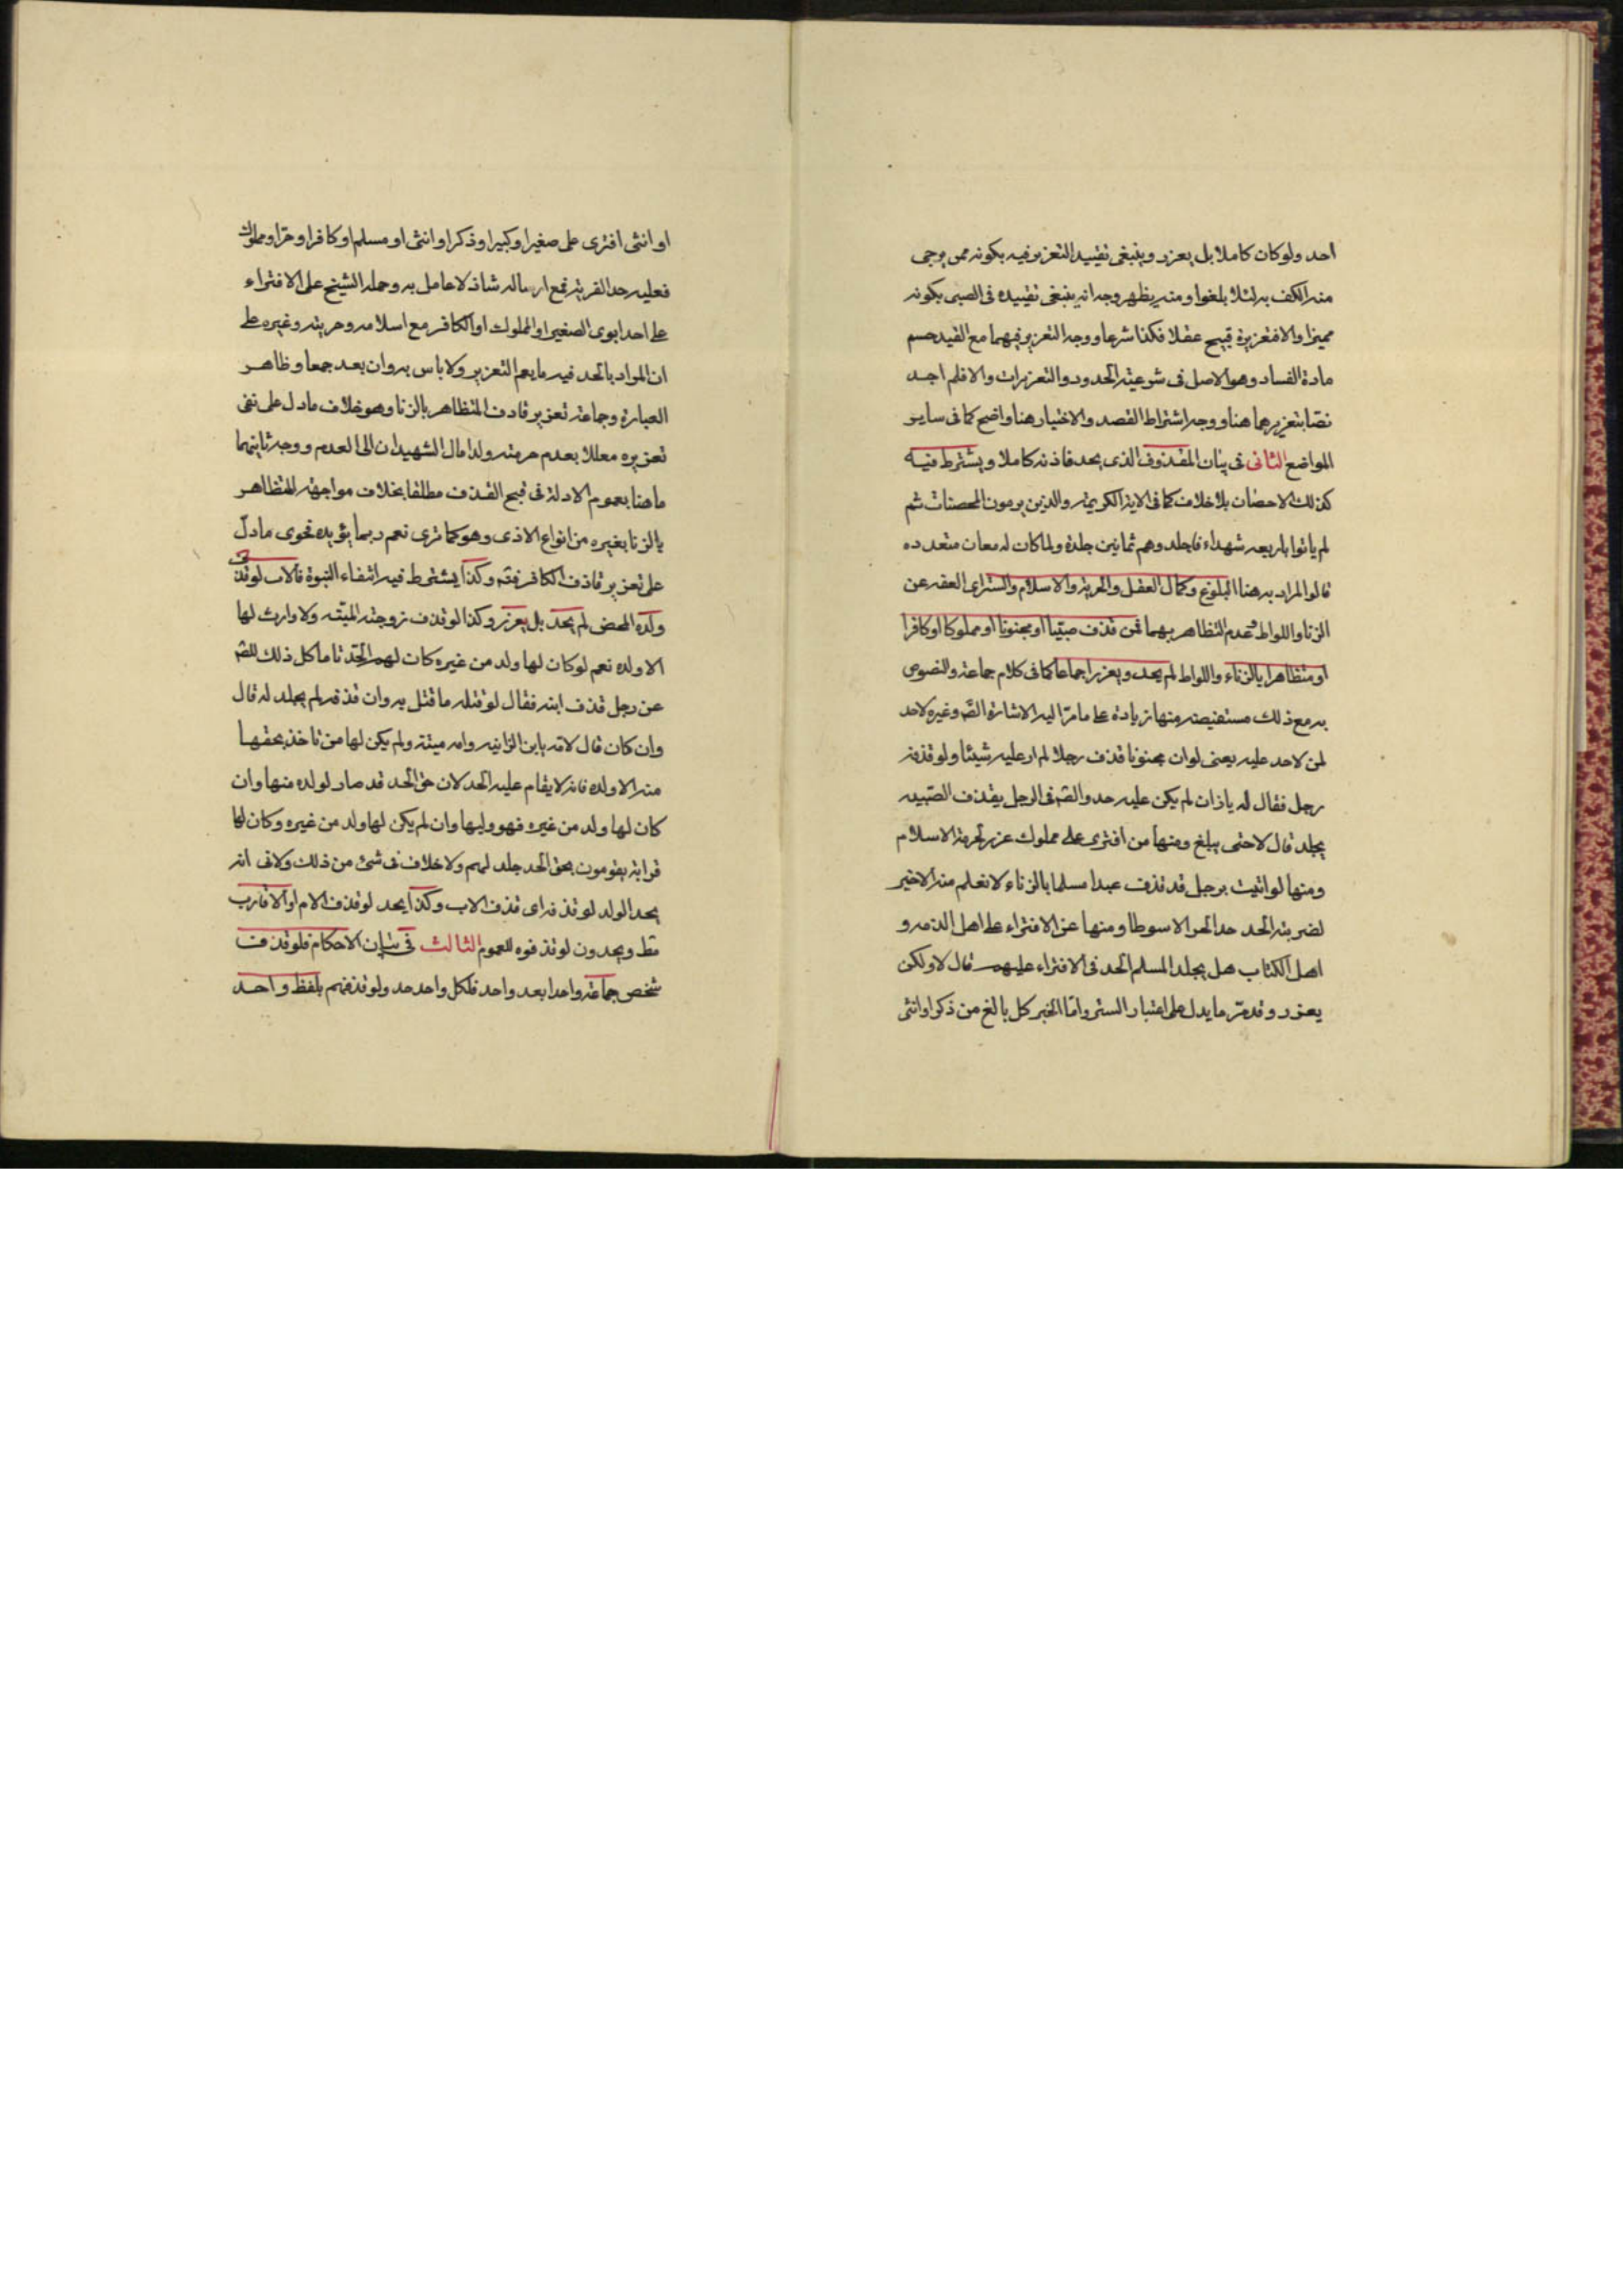 احد ولو كان كاملا بل يعزر وينبغى تقييد التعزير فيه بكونه ممن يرجى
منه الكف به لئلا يلغوا ومنه يظهر وجه انه ينبغى تقييده فى الصبى بكونه
مميزا والا فتعزيره قبيح عقلا فكذا شرعا ووجه التعزير فيهما مع القيد حسم
مادة الفساد وهو الاصل فى شرعية الحدود والتعزيرات والا فلم اجد
نصا بتعزيرهما هنا ووجه اشتراط القصد والاختيار هنا واضح كما فى ساير
المواضع الثانى فى بيان المقذوف الذى يحد قاذفه كاملا ويشترط فيه
كذلك الاحصان بلا خلاف كما فى الاية الكريمة والذين يرمون المحصنات ثم
لم ياتوا باربعه شهداء فاجلدوهم ثمانين جلدة ولما كان له معان متعدده
قالوا المراد به هنا البلوغ وكمال العقل والحرية والاسلام والستر اى العفه عن
الزنا واللواط وعدم التظاهر بهما فمن قذف صبيا او مجنونا او مملوكا او كافرا
او متظاهرا بالزناء واللواط لم يحد ويعزر اجماعا كما فى كلام جماعة والنصوص
به مع ذلك مستفيضه منها زيادة على ما مر اليه الاشارة الصم وغيره لا حد
لمن لا حد عليه يعنى لو ان مجنونا قذف رجلا لم ار عليه شيئا ولو قذفه
رجل فقال له يا زان لم يكن عليه حد والصم فى الرجل يقذف الصبيه
يجلد قال لا حتى يبلغ ومنها من افترى على مملوك عزر لحرمة الاسلام
ومنها لو اتيت برجل قد قذف عبدا مسلما بالزناء لا نعلم منه الا خير
لضربته الحد حد الحر الا سوطا ومنها عن الافتراء على اهل الذمه و
اهل الكتاب هل يجلد المسلم الحد فى الافتراء عليهم قال لا ولكن
يعزر وقد مر ما يدل على اعتبار الستر واما الخبر كل بالغ من ذكر او انثى
او انثى افترى على صغير او كبير او ذكر او انثى او مسلم او كافر او حر او مملوك
فعليه حد الفرية فمع ارساله شاذ لا عامل به وحمله الشيخ على الافتراء
على احد ابوى الصغير او المملوك او الكافر مع اسلامه وحريته وغيره على
ان المراد بالحد فيه ما يعم التعزير ولا باس به وان بعد جمعا وظاهر
العبارة وجماعة تعزير قاذف المتظاهر بالزنا وهو خلاف ما دل على نفى
تعزيره معللا بعدم حرمته ولذا مال الشهيدان الى العدم ووجه ثانيهما
ما هنا بعموم الادلة فى قبح القذف مطلقا بخلاف مواجهة المتظاهر
بالزنا بغيره من انواع الاذى وهو كما ترى نعم ربما يؤيده فحوى ما دل
على تعزير قاذف الكافر فتم وكذا يشترط فيه انتفاء البنوة فالاب لو قذف
ولده المحض لم يحد بل يعزر وكذا لو قذف زوجته الميته ولا وارث لها
الا ولده نعم لو كان لها ولد من غيره كان لهم الحد تاما كل ذلك للصم
عن رجل قذف ابنه فقال لو قتله ما قتل به وان قذفه لم يجلد له قال
وان كان قال لابنه يابن الزانيه وامه ميتة ولم يكن لها من تاخذ بحقها
منه الا ولده فانه لا يقام عليه الحد لان حق الحد قد صار لولده منها وان
كان لها ولد من غيره فهو وليها وان لم يكن لها ولد من غيره وكان لها
قرابة يقومون بحق الحد جلد لهم ولا خلاف فى شئ من ذلك ولا فى انه
يحد الولد لو قذفه اى قذف الاب وكذا يحد لو قذف الام او الاقارب
مط ويحدون لو قذفوه للعموم الثالث فى بيان الاحكام فلو قذف
شخص جماعة واحدا بعد واحد فلكل واحد حد ولو قذفهم بلفظ واحد